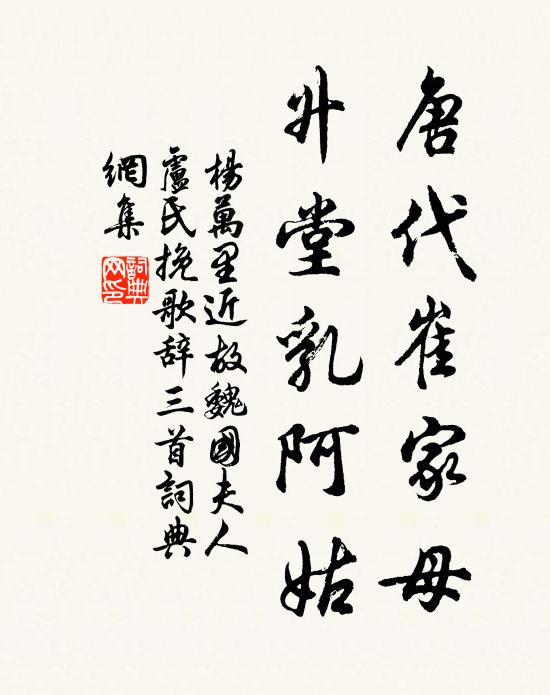 唐代崔家母
升堂乳阿姑
楊萬里近故魏國夫人
盧氏挽歌辞三首詞典
網集
詞典網印